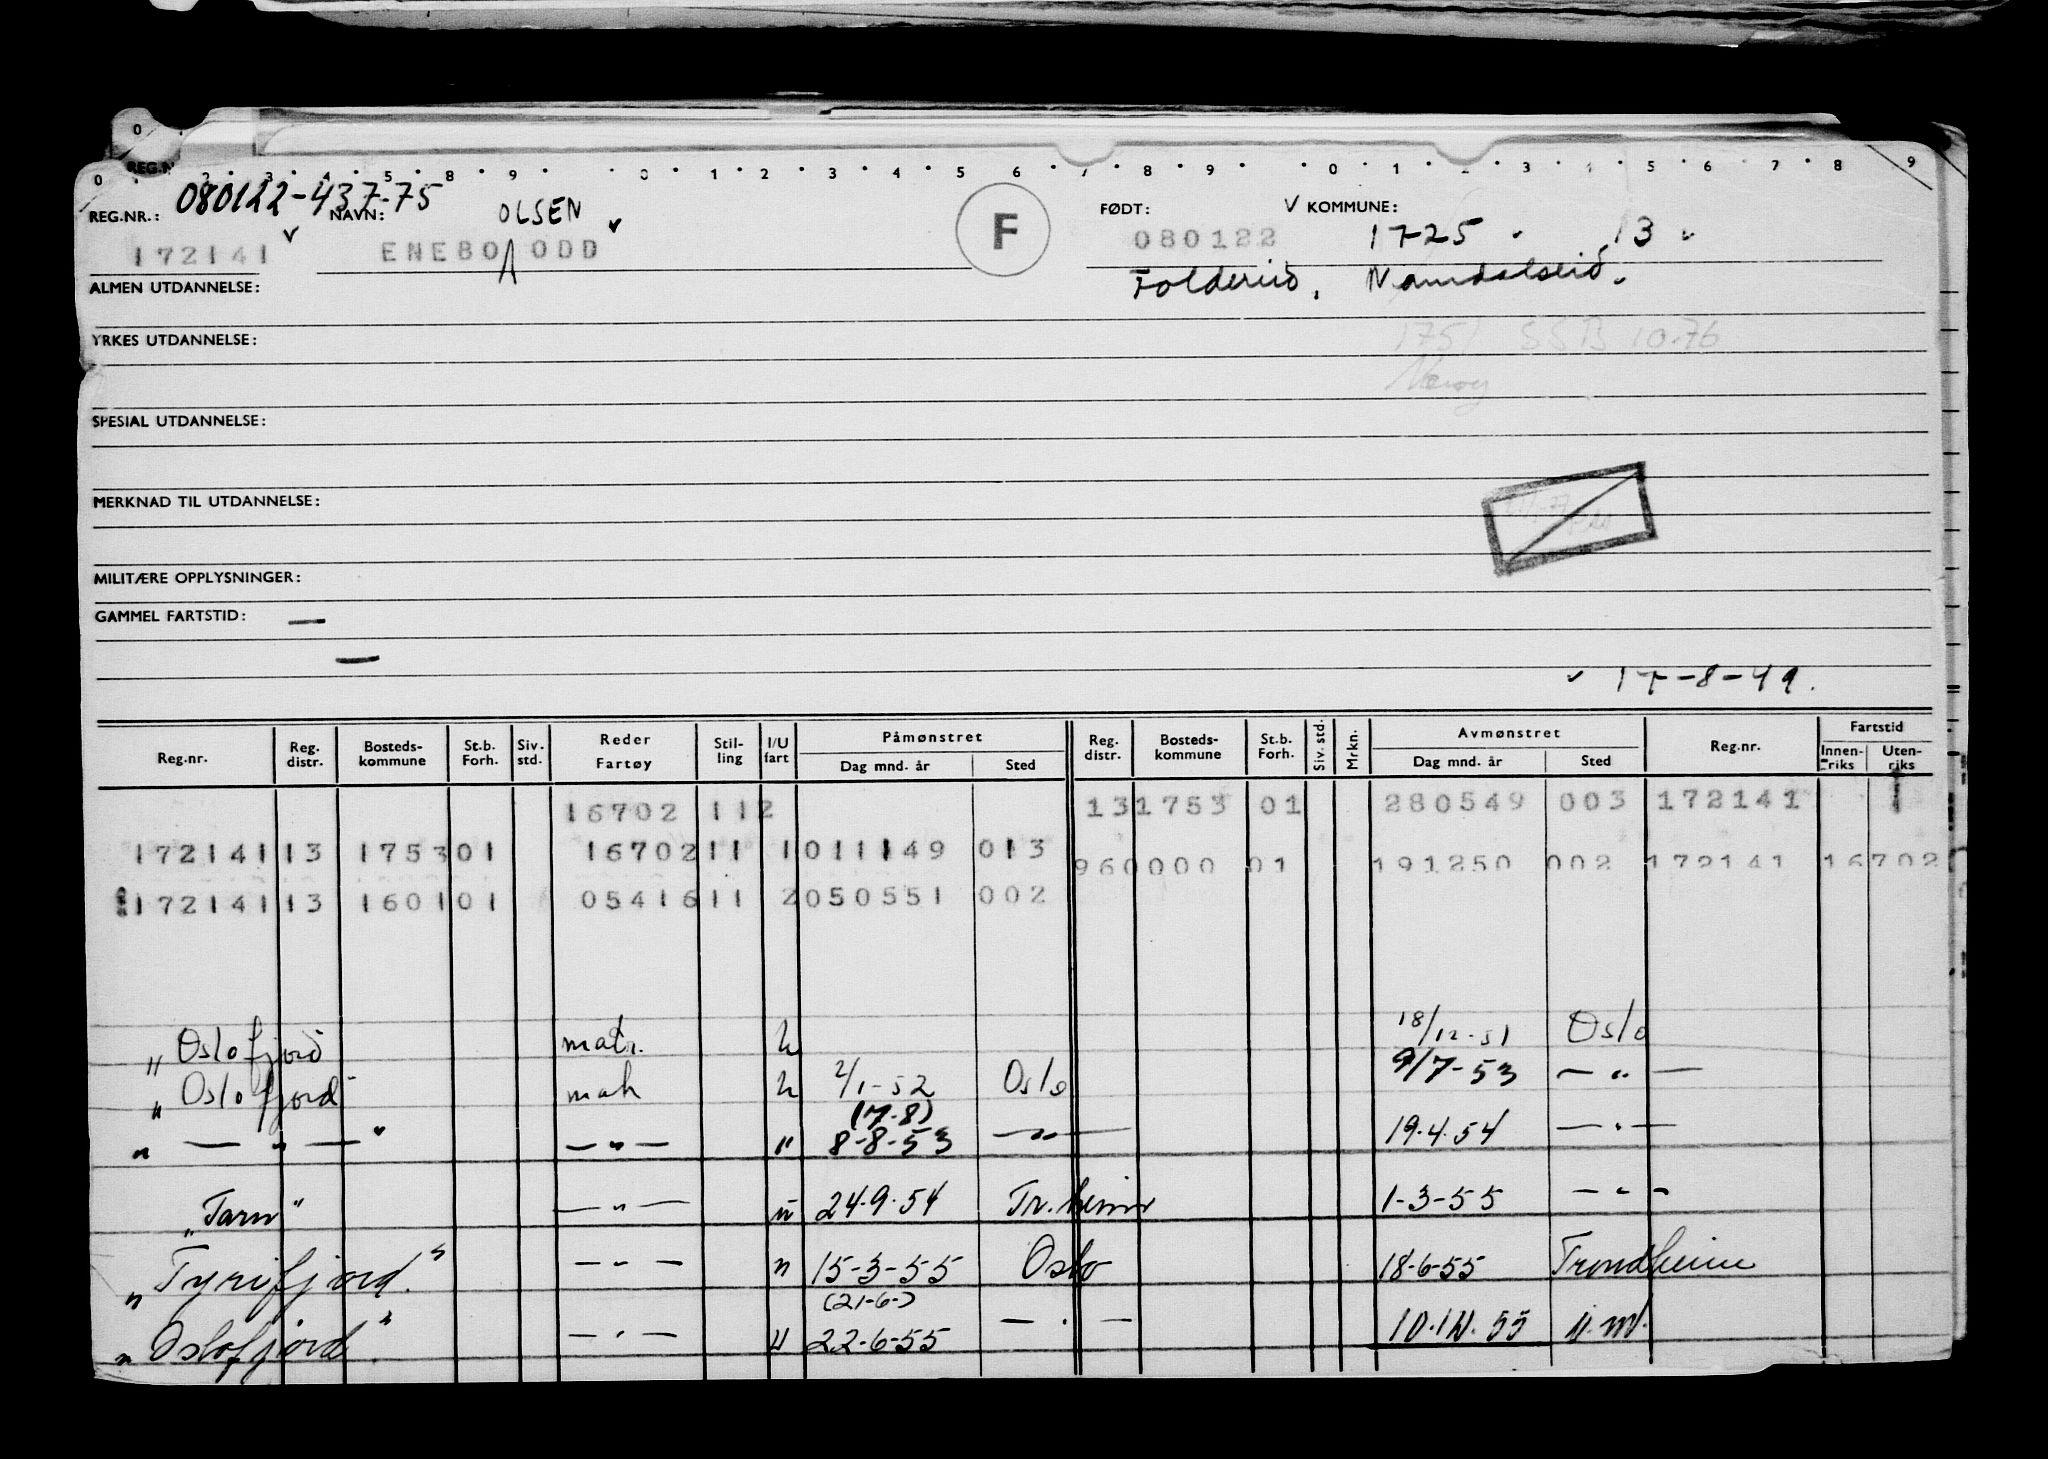 0
REG.N
0 2 3 5 8 9 0 1 2 3 4 5 6 7 8 9 0 1 2 3 4 5 6 7 8 9
REG.NR.: 080122-437-75 NAVN: OLSEN F FØDT: V KOMMUNE:
172141 ENEBO ODD 080122 1725 13
Foldereid, Namdalseid.
ALMEN UTDANNELSE:
YRKES UTDANNELSE: 1751 SSB 10.76
Nærøy
SPESIAL UTDANNELSE:
MERKNAD TIL UTDANNELSE:
MILITÆRE OPPLYSNINGER:
GAMMEL FARTSTID: —
—
17-8-49.
Reg.nr. Reg. distr. Bosteds-kommune St.b. Forh. Siv. std. Reder Fartøy Stil-ling I/U fart Påmønstret Dag mnd. år Sted Reg. distr. Bosteds-kommune St.b. Forh. Siv. std. Mrkn. Avmønstret Dag mnd. år Sted Reg.nr. Fartstid Innen-riks Uten-riks
16702 112 131753 01 280549 003 172141 1
172141 13 1753 01 16702 11 1 011149 013 960000 01 191250 002 172141 16702
172141 13 1601 01 05416 11 2 050551 002
" Oslofjord matr. u 18/12-51 Oslo
" Oslofjord" matr u 2/1-52 Oslo 9/7-53 — " —
(7-8)
" — " — " — " — " 8-8-53 — " — 19.4.54 — " —
"Tarn" — " — u 24.9.54 Tr.heim 1-3-55 — " —
" Tyrifjord." — " — " 15-3-55 Oslo 18-6-55 Trondheim
(21-6-)
" Oslofjord". — " — U 22-6-55 — " — 10.12.55